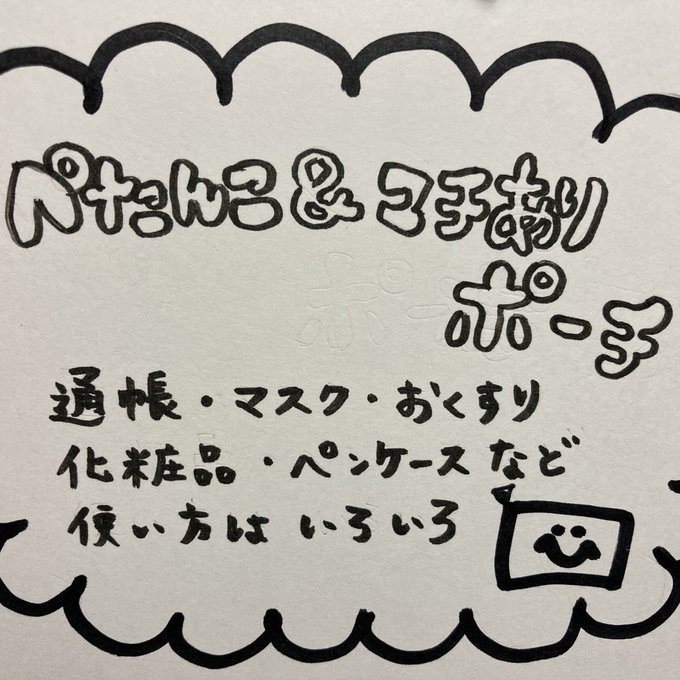 ぺたんこ&マチあり
ポーチ
通帳・マスク・おくすり
化粧品・ペンケースなど
使い方はいろいろ